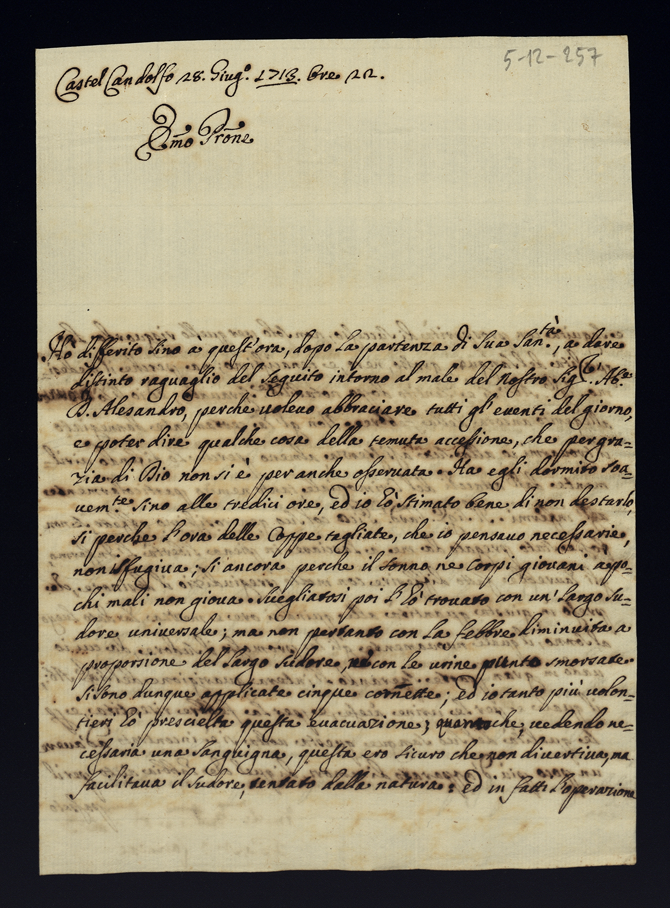 5-12-257
Castel Candolfo 28. Giug.º 1713. Ore 22.
Emo Prone
Hò differito sino à quest'ora, dopo la partenza di Sua San.tà, a dare
distinto raguaglio del seguito intorno al male del nostro Sig.re Ab.e
D. Alesandro, perche volevo abbraciare tutti gl'eventi del giorno,
e poter dire qualche cosa della temuta accessione, che per gra=
zia di Dio non si è per anche osservata. Ha egli dormito soa=
vem.te sino alle tredici ore, ed io hò stimato bene di non destarlo,
si perche l'ora delle coppe tagliate, che io pensavo necessarie,
non isfugiva; si ancora perche il sonno ne corpi giovani à po=
chi mali non giova. Svegliatosi poi l'hò trovato con un' largo su=
dore universale; ma non pertanto con la febbre diminuita a
proporzione del largo sudore, nè con le urine punto smorsate
si sono dunque applicate cinque cornette; ed io tanto più volon=
tieri hò prescielta questa evacuazione; che, vedendo ne=
cessaria una sanguigna, questa ero sicuro che non divertiva, ma
facilitava il sudore, tentato dalla natura: ed in fatti l'operazione